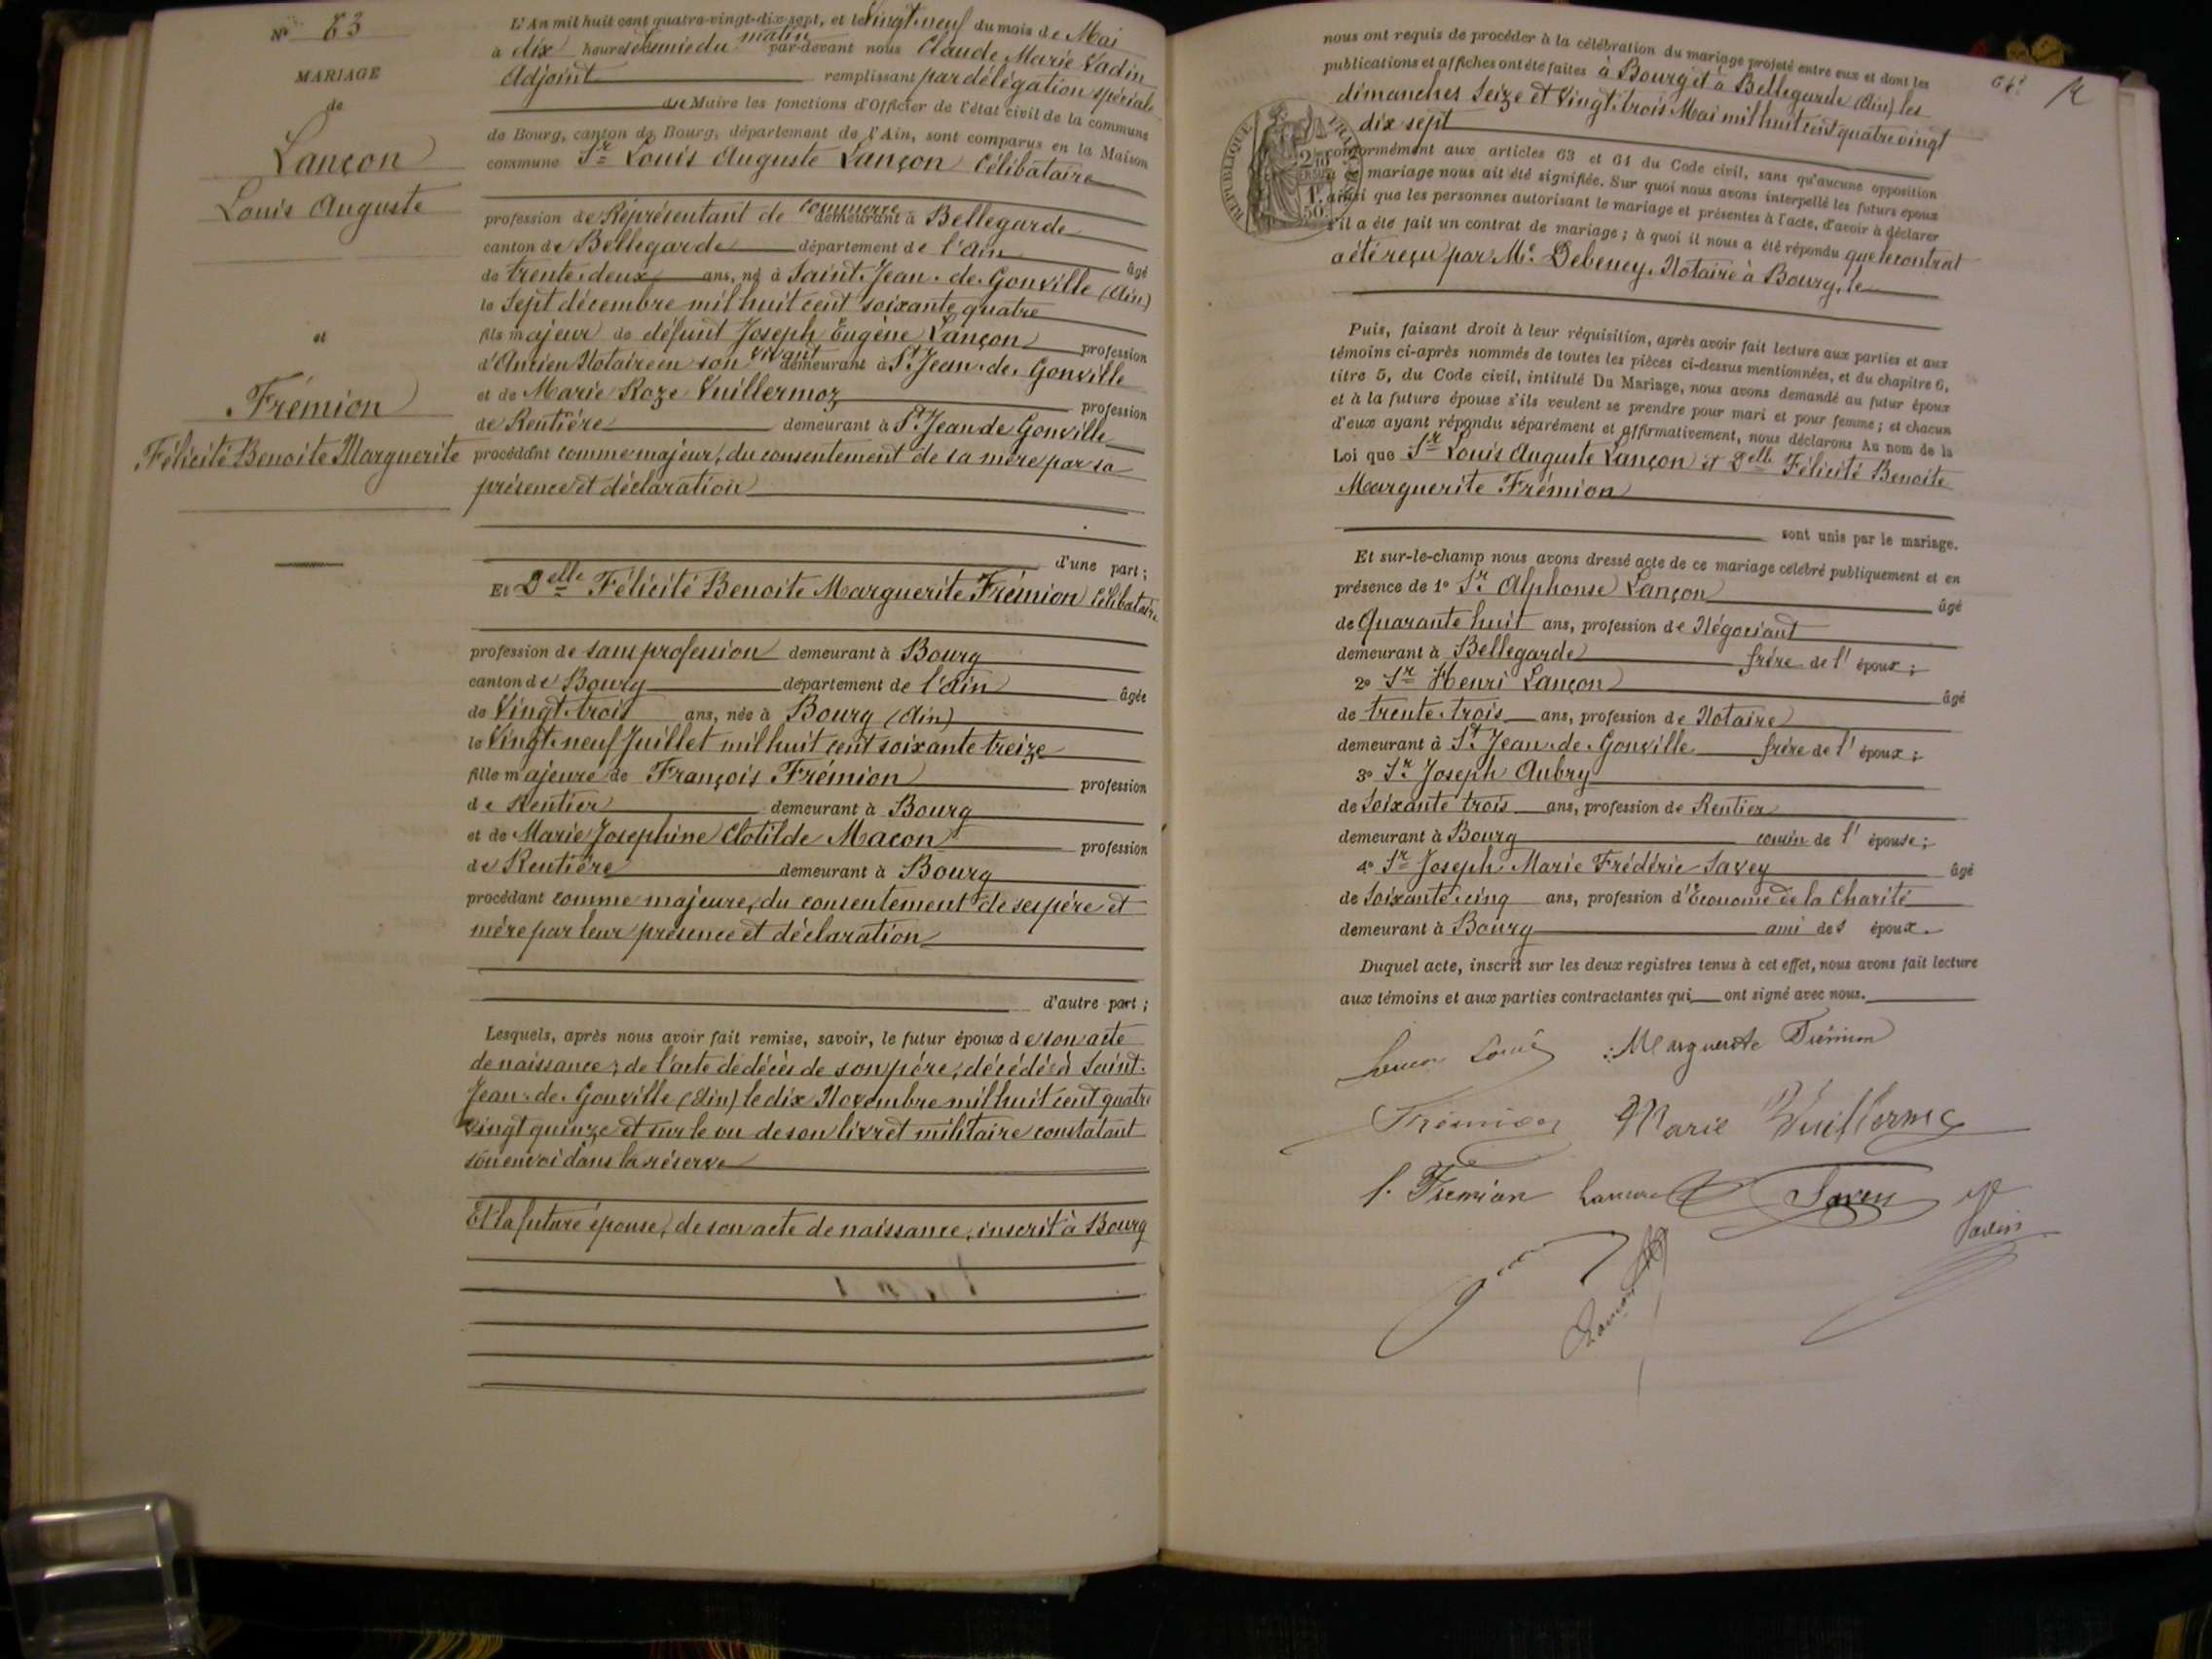 N° 83
MARIAGE
de
Lançon
Louis Auguste
et
Frémion
Félicité Benoite Marguerite
L'An mil huit cent quatre-vingt-dix-sept, et le Vingt-neuf du mois de Mai
à dix heures et demie du matin par-devant nous Claude Marie Vadin
Adjoint remplissant par délégation spéciale
du Maire les fonctions d'Officier de l'état civil de la commune
de Bourg, canton de Bourg, département de l'Ain, sont comparus en la Maison
commune Sr Louis Auguste Lançon Célibataire
profession de Réprésentant de commerce demeurant à Bellegarde
canton de Bellegarde département de l'Ain âgé
de trente-deux ans, né à Saint-Jean-de-Gonville (Ain)
le Sept décembre mil huit cent soixante quatre
fils majeur de défunt Joseph Eugène Lançon profession
d'Ancien Notaire en son vivant demeurant à St Jean-de-Gonville
et de Marie Roze Vuillermoz profession
de Rentière demeurant à St Jean de Gonville
procédant comme majeur, du consentement de sa mère par sa
présence et déclaration
d'une part;
Et Delle Félicité Benoite Marguerite Frémion Célibataire
profession de sans profession demeurant à Bourg
canton de Bourg département de l'Ain âgée
de Vingt-trois ans, née à Bourg (Ain)
le Vingt-neuf Juillet mil huit cent soixante treize
fille majeure de François Frémion profession
de Rentier demeurant à Bourg
et de Marie Josephine Clotilde Macon profession
de Rentière demeurant à Bourg
procédant comme majeure, du consentement de ses père et
mère par leur présence et déclaration
d'autre part;
Lesquels, après nous avoir fait remise, savoir, le futur époux de son acte
de naissance; de l'acte de décès de son père, décédé à Saint-
Jean-de-Gonville (Ain) le dix Novembre mil huit cent quatre
vingt quinze et sur le vu de son livret militaire constatant
son envoi dans la réserve
Et la future épouse, de son acte de naissance, inscrit à Bourg
nous ont requis de procéder à la célébration du mariage projeté entre eux et dont les
publications et affiches ont été faites à Bourg et à Bellegarde (Ain) les
dimanches Seize et Vingt-trois Mai mil huit cent quatre vingt
dix sept
conformément aux articles 63 et 64 du Code civil, sans qu'aucune opposition
à ce mariage nous ait été signifiée. Sur quoi nous avons interpellé les futurs époux
ainsi que les personnes autorisant le mariage et présentes à l'acte, d'avoir à déclarer
s'il a été fait un contrat de mariage; à quoi il nous a été répondu que le contrat
a été reçu par Me Debeney, Notaire à Bourg, le
RÉPUBLIQUE FRANÇAISE
1f
50c
Puis, faisant droit à leur réquisition, après avoir fait lecture aux parties et aux
témoins ci-après nommés de toutes les pièces ci-dessus mentionnées, et du chapitre 6,
titre 5, du Code civil, intitulé Du Mariage, nous avons demandé au futur époux
et à la future épouse s'ils veulent se prendre pour mari et pour femme; et chacun
d'eux ayant répondu séparément et affirmativement, nous déclarons Au nom de la
Loi que Sr Louis Auguste Lançon et Delle Félicité Benoite
Marguerite Frémion
sont unis par le mariage.
Et sur-le-champ nous avons dressé acte de ce mariage célébré publiquement et en
présence de 1° Sr Alphonse Lançon âgé
de Quarante huit ans, profession de Négociant
demeurant à Bellegarde frère de l'époux;
2° Sr Henri Lançon âgé
de trente-trois ans, profession de Notaire
demeurant à St Jean-de-Gonville frère de l'époux;
3° Sr Joseph Aubry
de Soixante trois ans, profession de Rentier
demeurant à Bourg cousin de l'épouse;
4° Sr Joseph Marie Frédéric Savey âgé
de Soixante-cinq ans, profession d'Économe de la Charité
demeurant à Bourg ami des époux.
Duquel acte, inscrit sur les deux registres tenus à cet effet, nous avons fait lecture
aux témoins et aux parties contractantes qui ont signé avec nous.
Lançon Louis Marguerite Frémion
Frémion Marie Vuillermoz
Frémion Lançon Savey
Vadin
Lançon